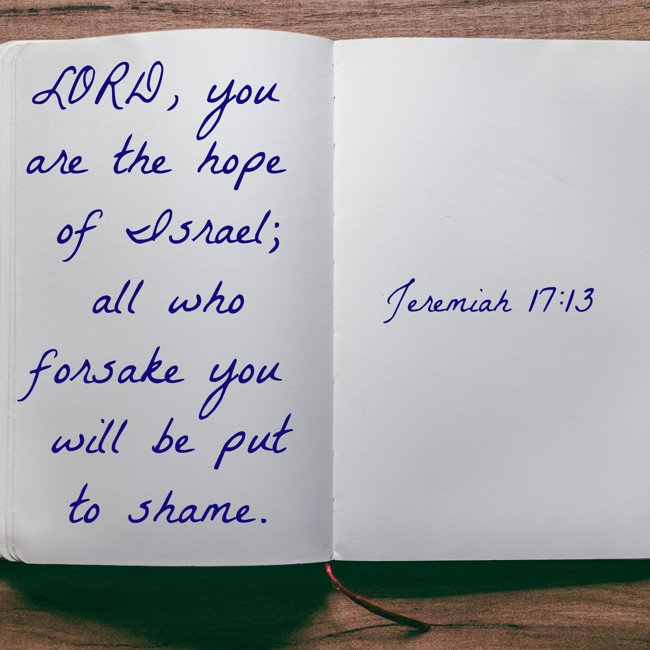 LORD, you
are the hope
of Israel;
all who
forsake you
will be put
to shame.
Jeremiah 17:13